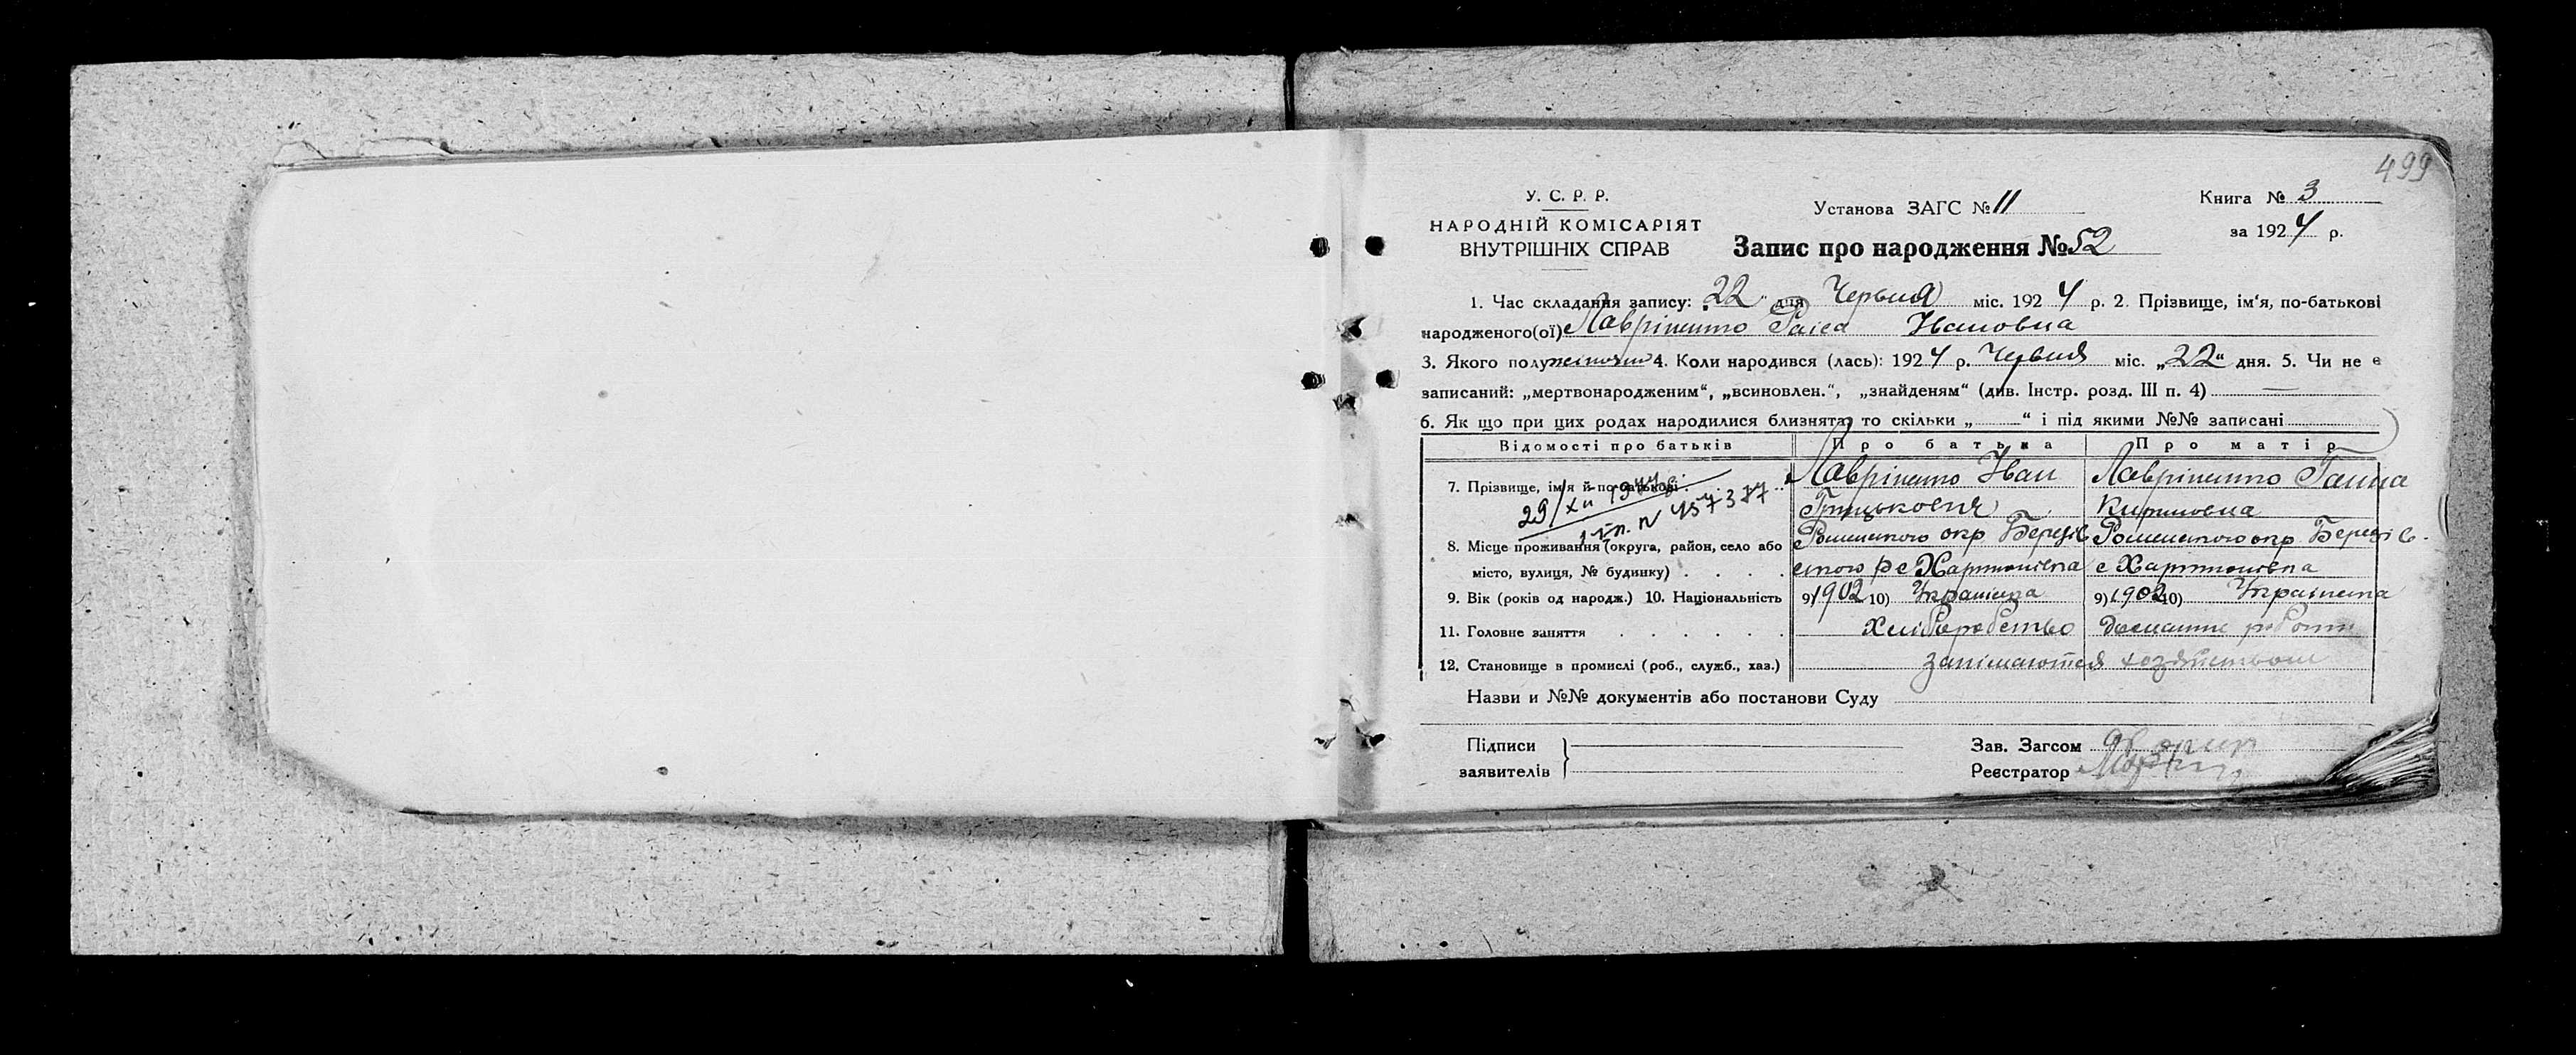 499
У. С. Р. Р.
НАРОДНІЙ КОМІСАРІЯТ
ВНУТРІШНІХ СПРАВ
Установа ЗАГС № 11
Запис про народження № 52
Книга № 3
за 1924 р.
1. Час складання запису: "22" дня Червня міс. 1924 р. 2. Прізвище, ім'я, по-батькові
народженого(ої) Лавріненко Раіса Ивановна
3. Якого полу жіночого 4. Коли народився (лась): 1924 р. Червня міс. „22" дня. 5. Чи не є
записаний: „мертвонародженим", „всиновлен.", „знайденям" (див. Інстр. розд. III п. 4) —
6. Як що при цих родах народилися близнята, то скільки „ " і під якими №№ записані
Відомості про батьків Про батька Про матір
7. Прізвище, ім'я й по-батькові Лавріненко Иван Лавріненко Ганна
Грицькович Кириловна
29/XII 1944
8. Місце проживання (округа, район, село або Роменского окр Березів Роменского окр Березів
місто, вулиця, № будинку) ского р с Хартківка с Хартківка
9. Вік (років од народж.) 10. Національність 9) 1902 10) Українца 9) 1902 10) Українка
11. Головне заняття Хліборобство домашне работы
12. Становище в промислі (роб., служб., хаз.) занімаются хозяйством
Назви и №№ документів або постанови Суду
Підписи
заявителів
Зав. Загсом
Реєстратор